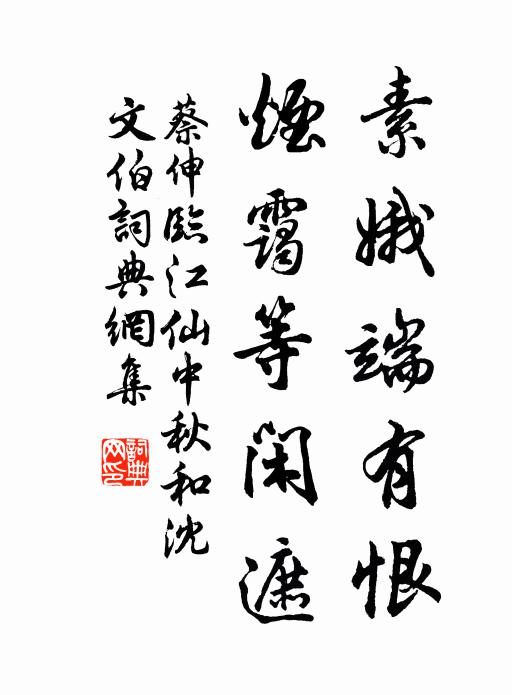 素娥端有恨
煙靄等閑遮
蔡伸臨江仙中秋和沈
文伯詞典網集
詞典網印